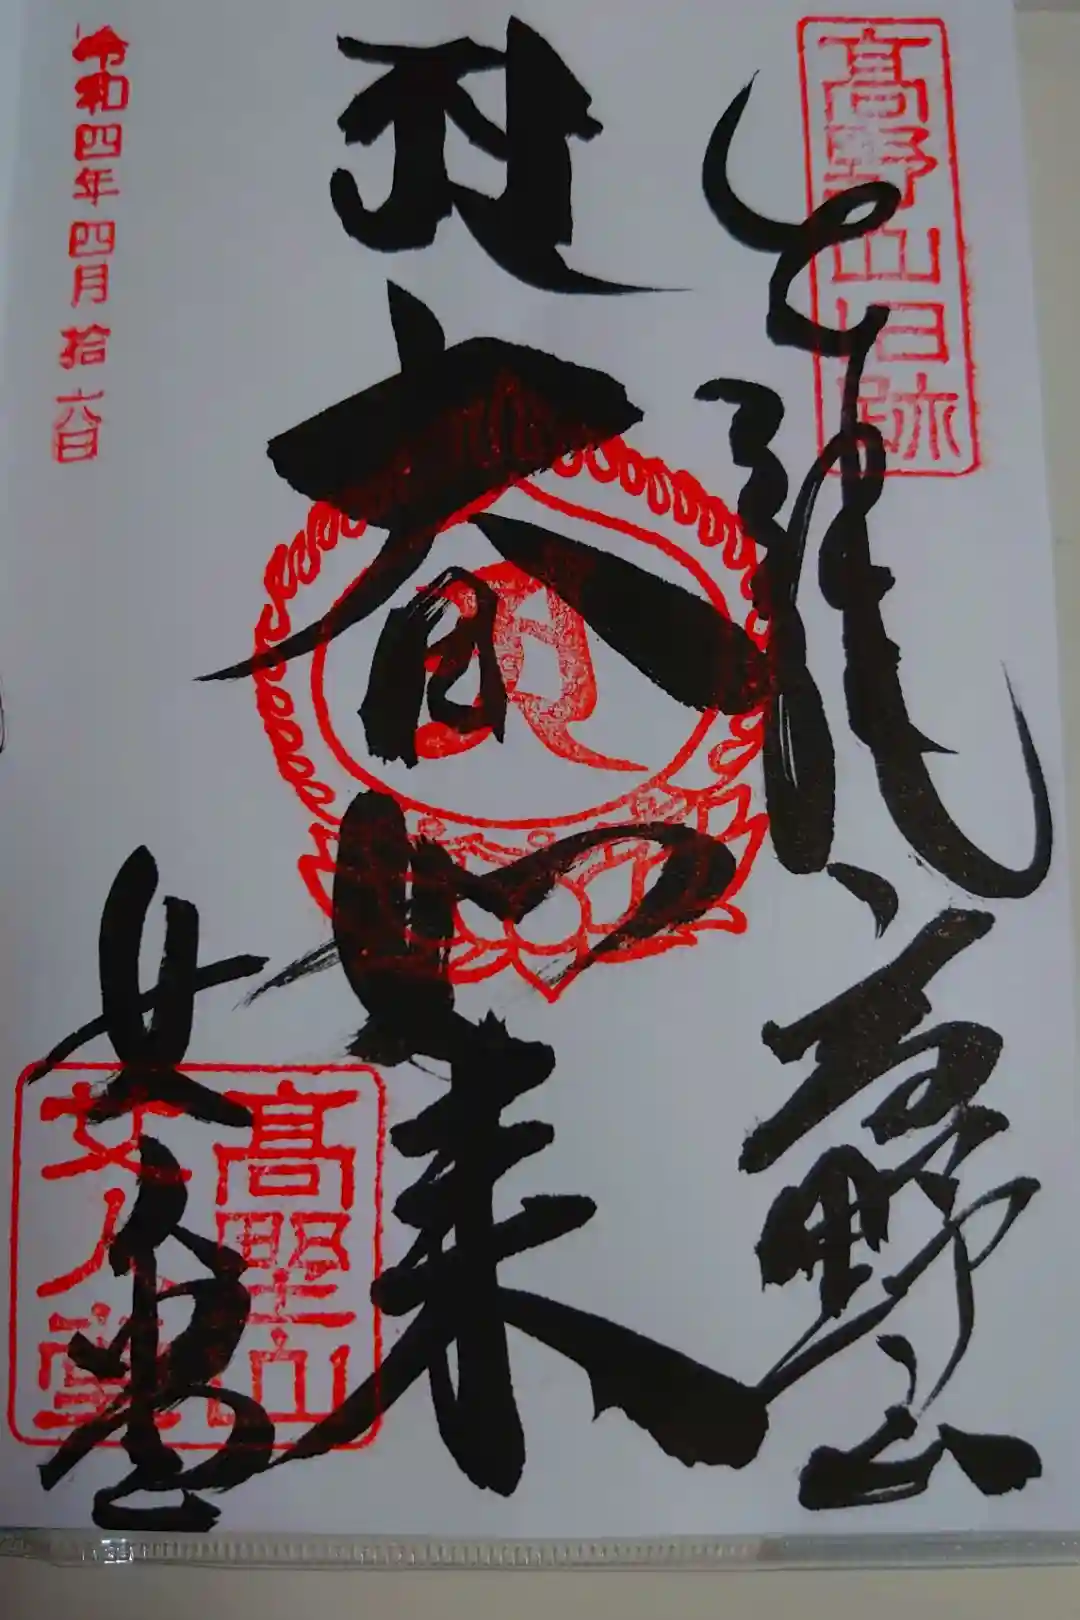 高野山旧跡
奉拝
高野山
大日如来
女人堂
高野山
女人堂
令和四年四月拾六日